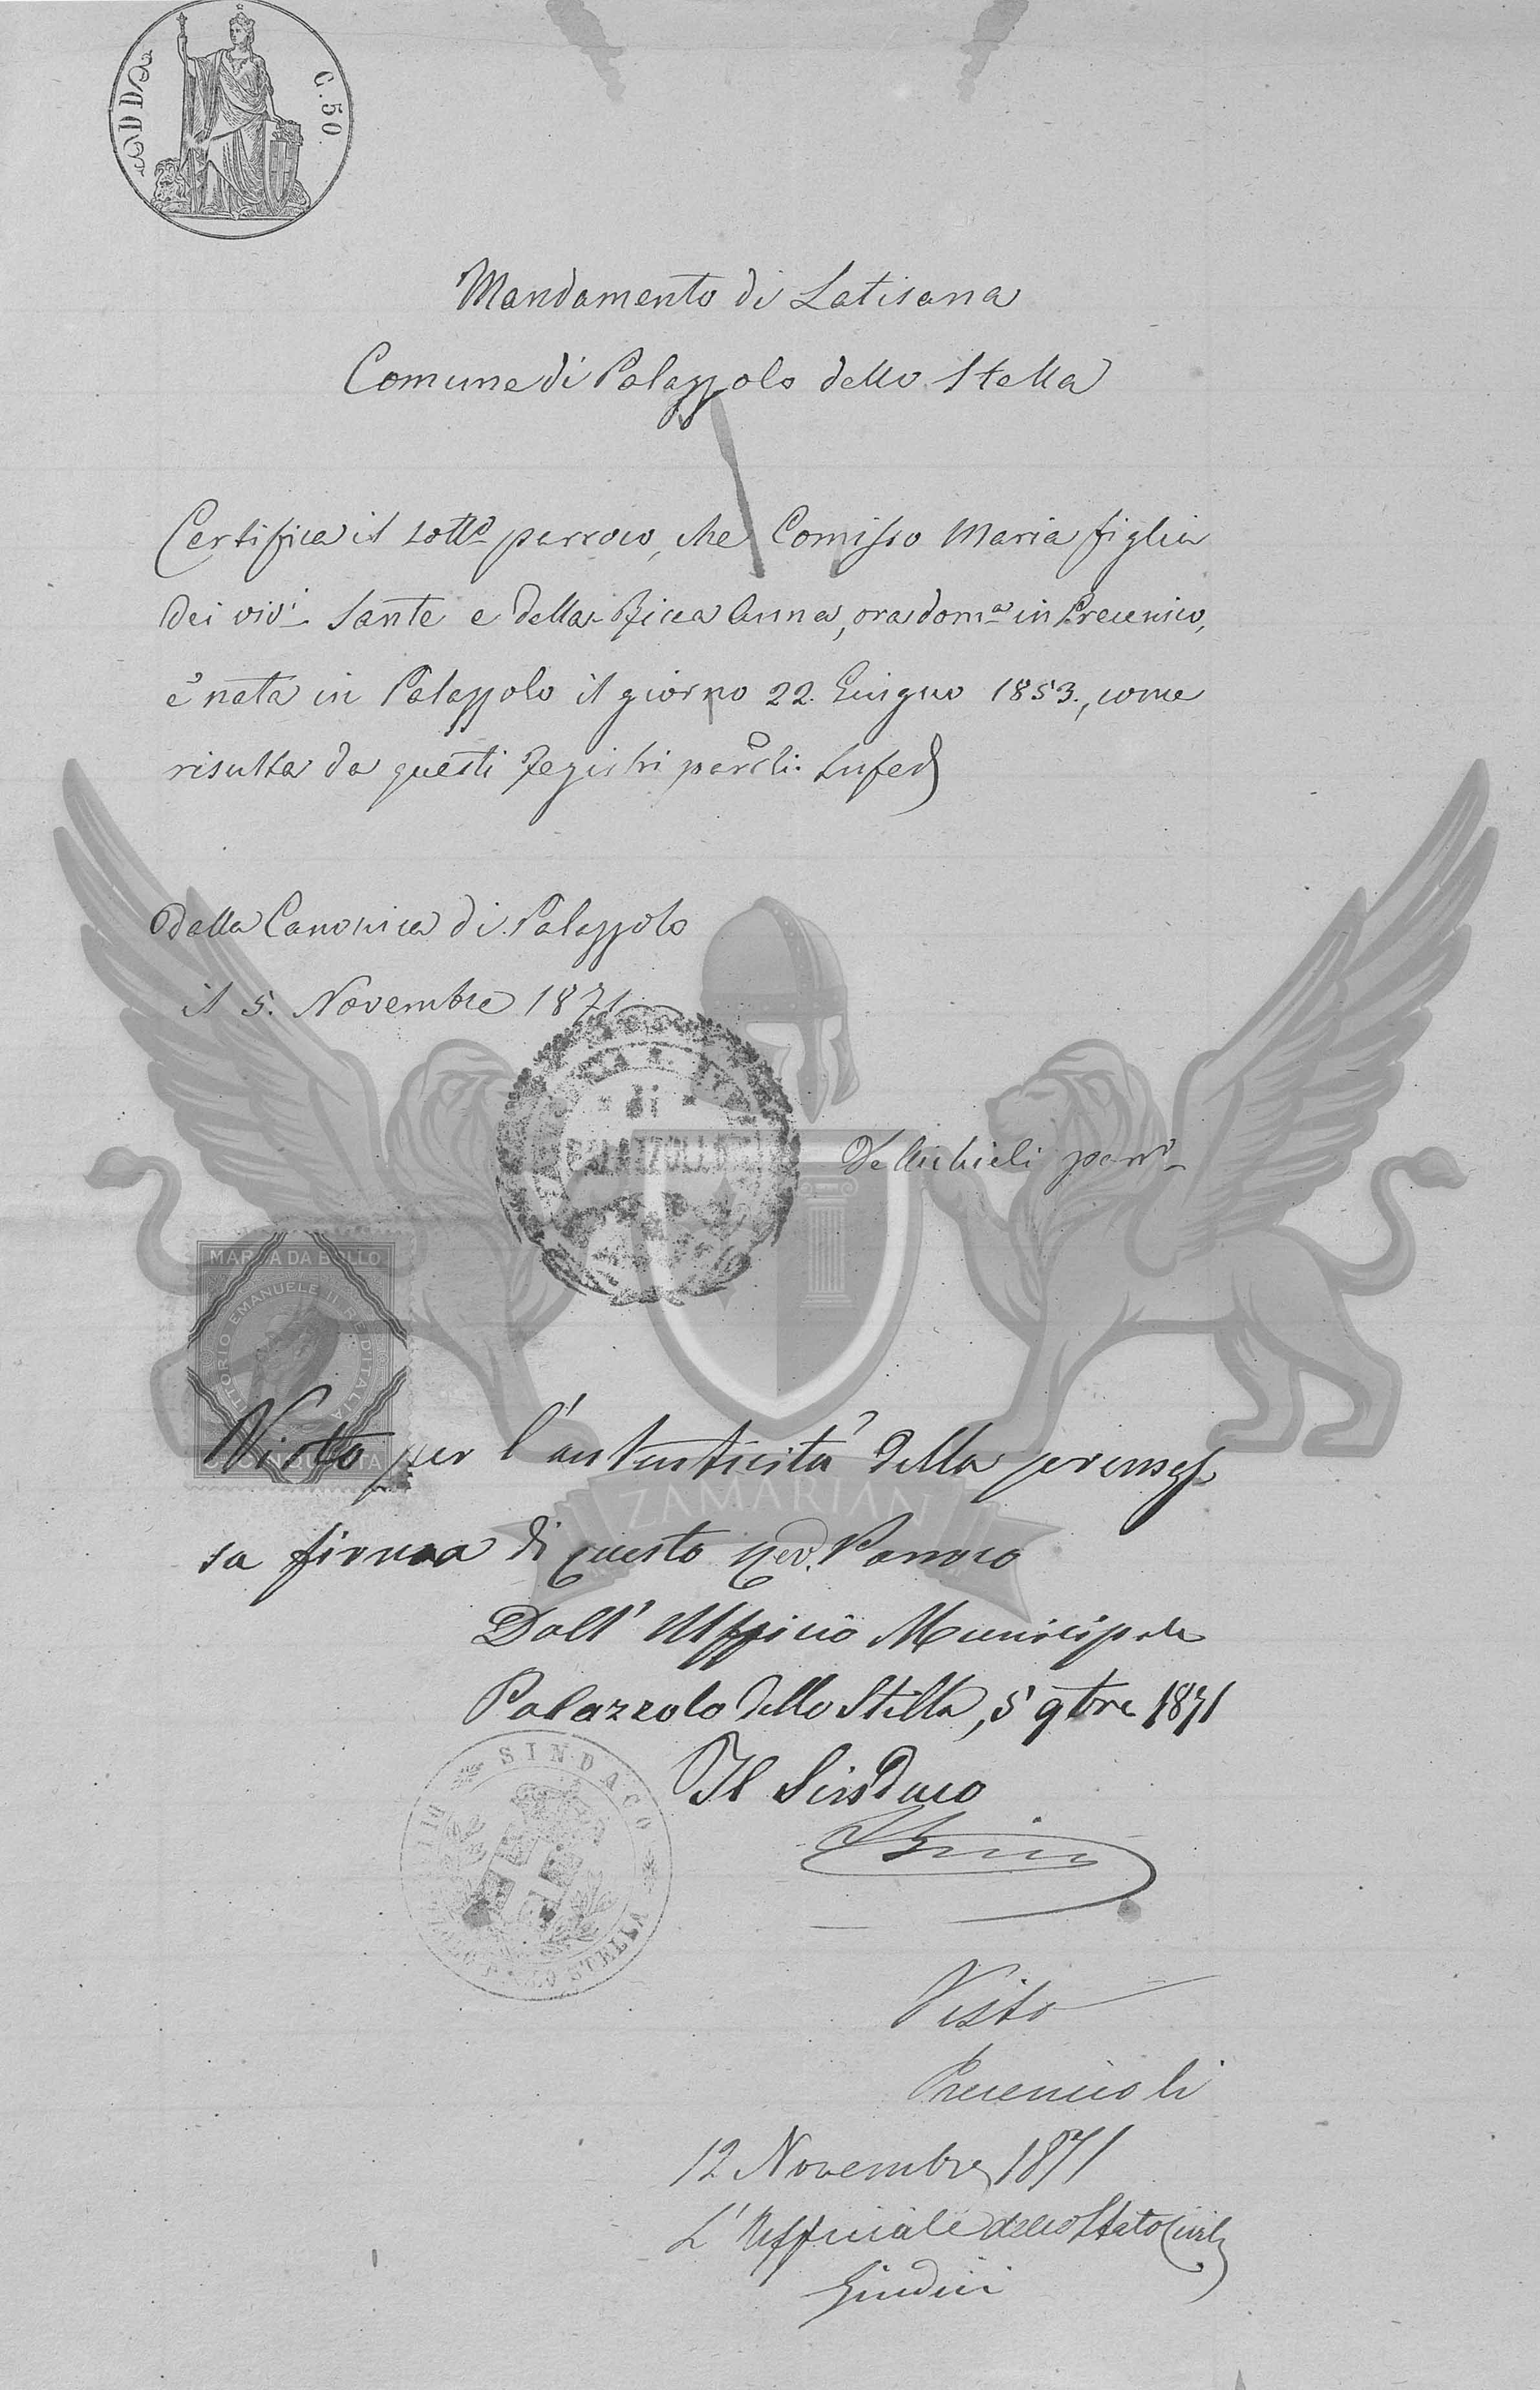 C. 50
Mandamento di Latisana
Comune di Palazzolo dello Stella
Certifica il sotto parroco, che Comisso Maria figlia
dei viv.i Sante e della Bicca Anna, ora dom.a in Precenico,
è nata in Palazzolo il giorno 22. Giugno 1853., come
risulta da questi Registri parr.li. In fede
Dalla Canonica di Palazzolo
il 5. Novembre 1871
di
PALAZZOLO
De Michieli parr.o
MARCA DA BOLLO
VITTORIO EMANUELE II RE D'ITALIA
Visto per l'autenticità della premes
sa firma di questo Rev. Parroco
Dall' Ufficio Municipale
Palazzolo dello Stella, 5 9bre 1871
Il Sindaco
SINDACO
STELLA
ZAMARIAN
Visto
Precenico li
12 Novembre 1871
L' Ufficiale dello Stato Civile
Giudici